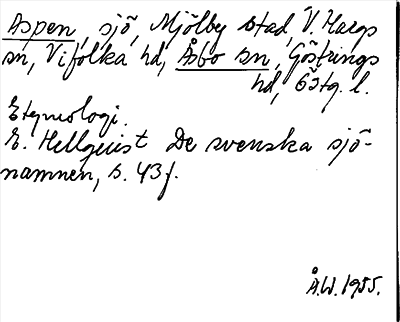 Aspen, sjö, Mjölby stad, V. Hargs
sn, Vifolka hd, Åsbo sn, Göstrings
hd, Östg. l.
Etymologi.
E. Hellquist De svenska sjö-
namnen, s. 43 f.
Å.W. 1955.